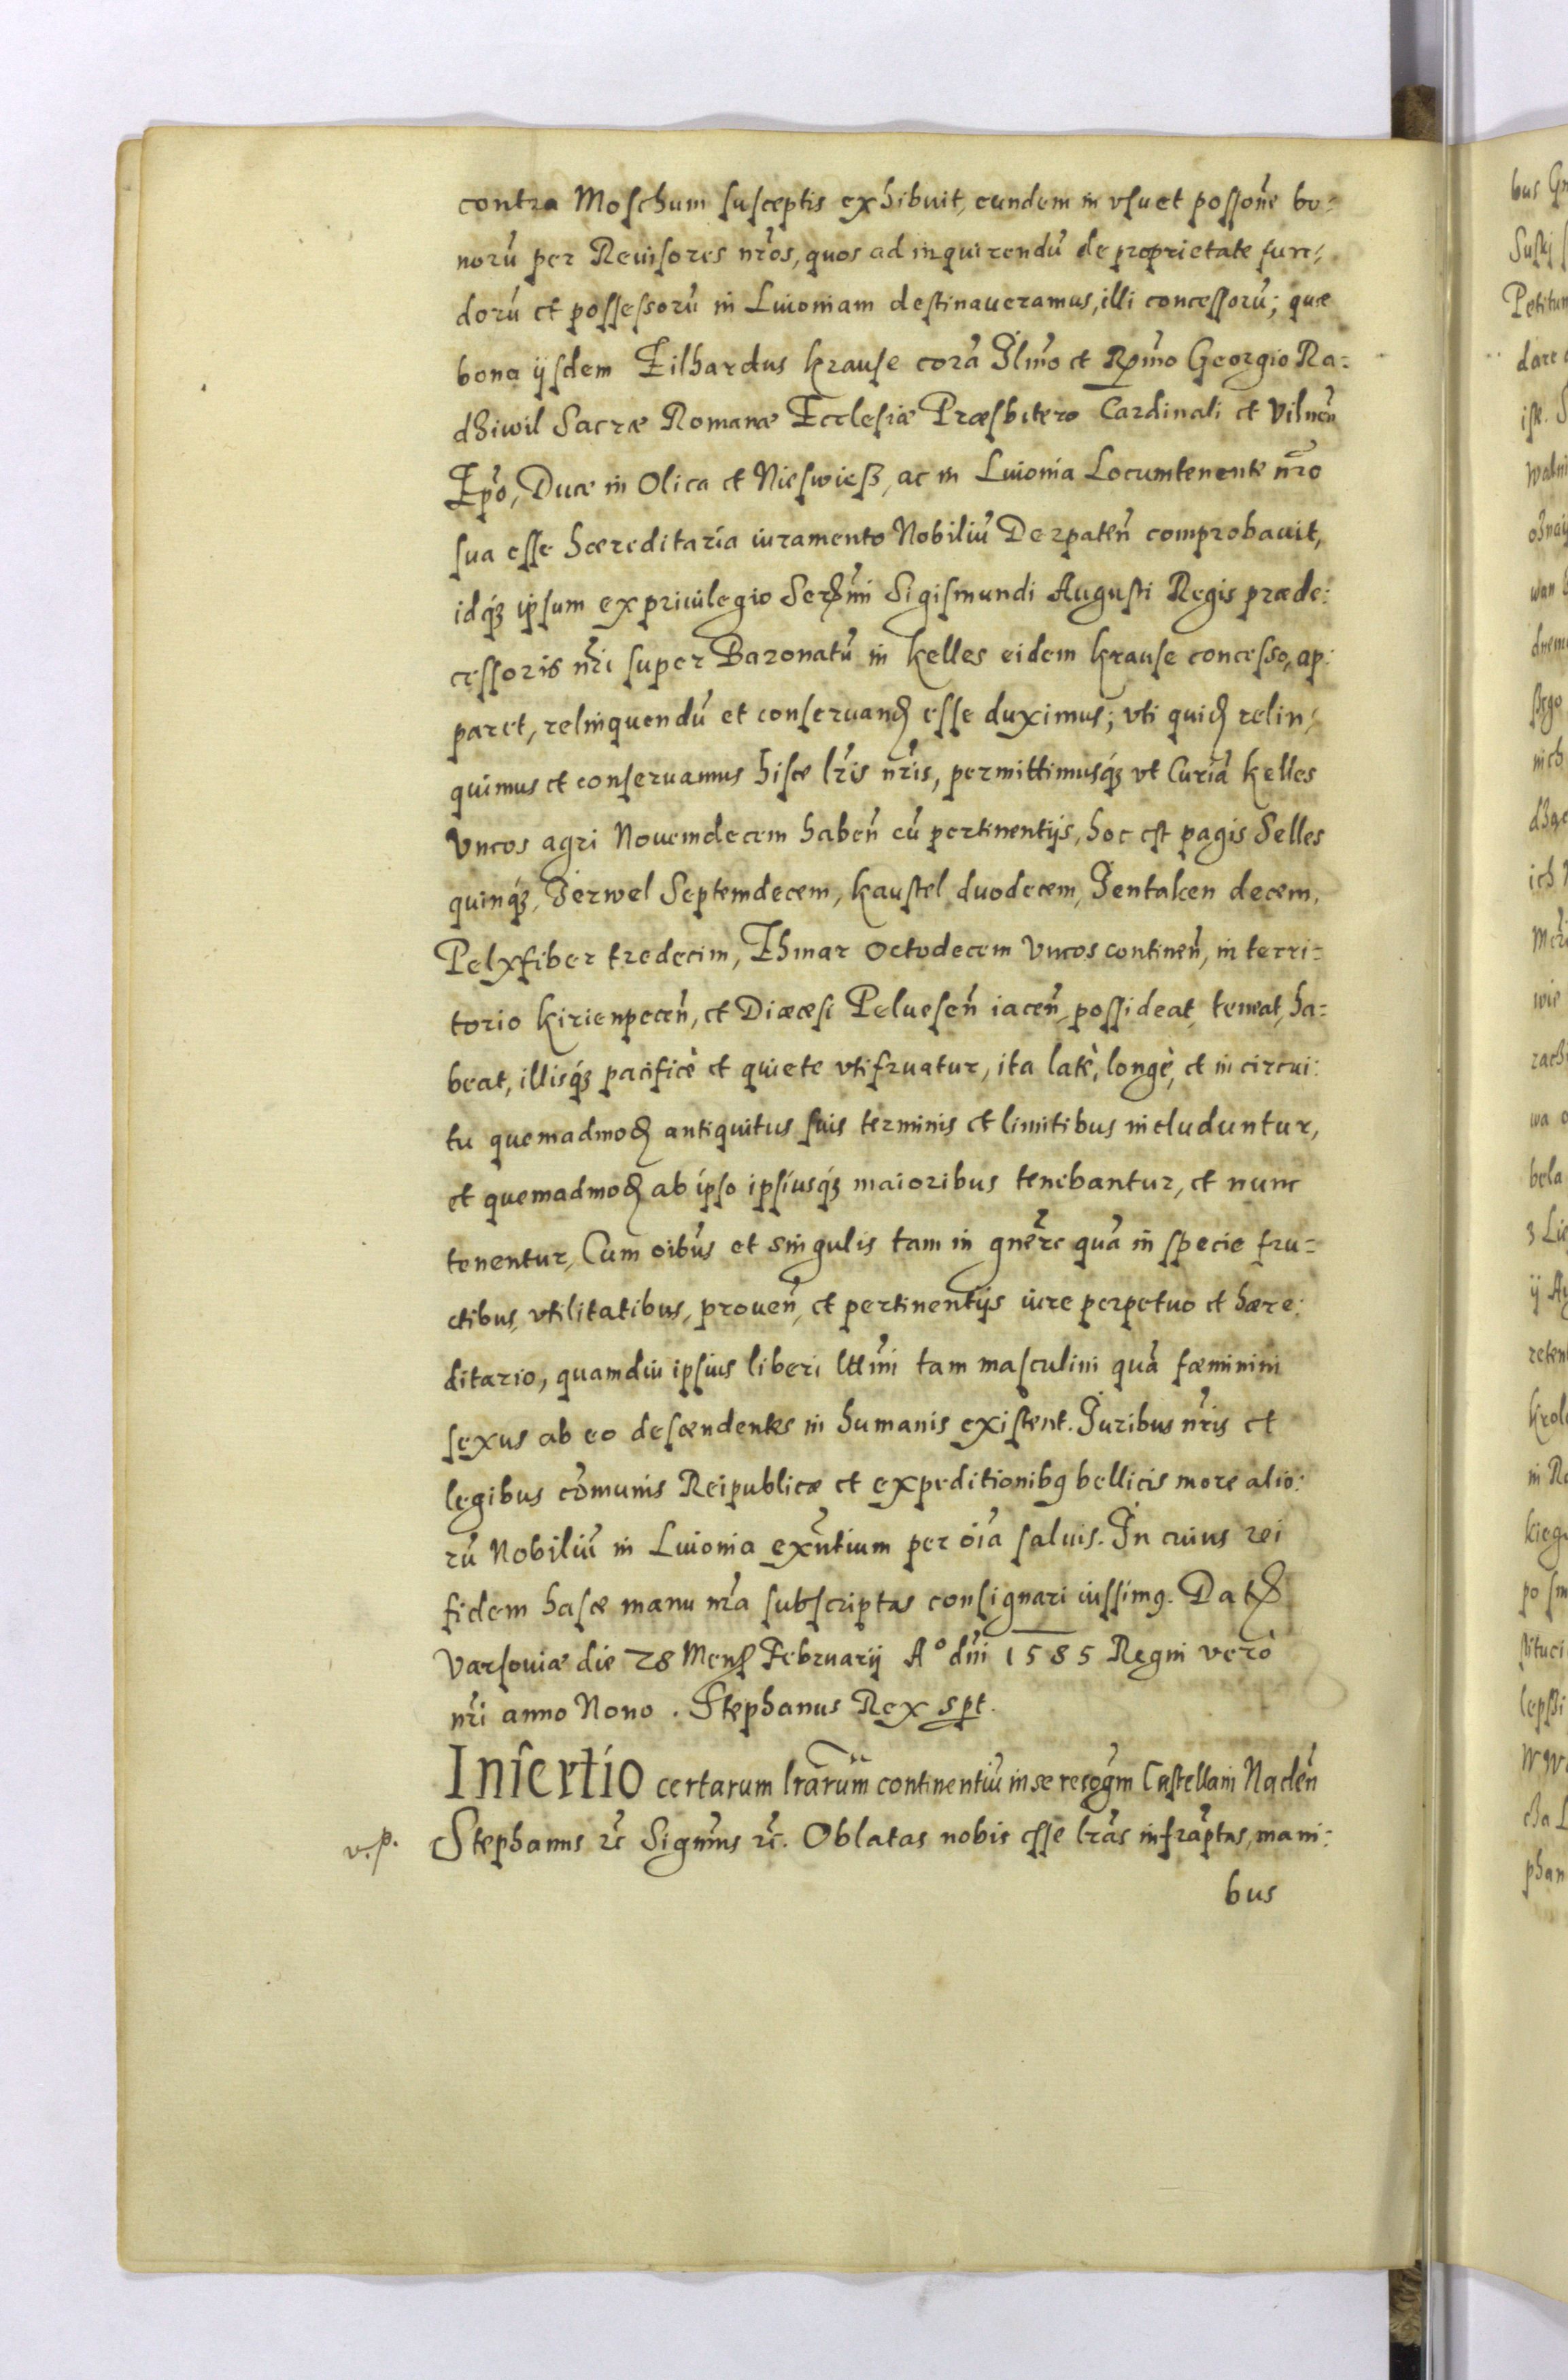 contra Moschum susceptis exhibuit, eundem in vsu et possone bo=
norũ per Reuisores nros, quos ad inquirendũ de proprietate fun=
dorũ et possessorũ in Liuoniam destinaueramus, illi concessorũ; quæ
bona ijsdem Eilhardus Krause corã Illmo et Rmo Georgio Ra=
dziwil Sacræ Romanæ Ecclesiæ Præsbitero Cardinali et Vilnen
Epo, Duce in Olica et Nieswież, ac in Liuonia Locumtenente nro
sua esse hæreditaria iuramento Nobiliũ Derpaten comprobauit,
idq3 ipsum ex priuilegio Sermi Sigismundi Augusti Regis præde:
cessoris nri super Baronatũ in Kelles eidem Krause concesso, ap:
paret, relinquendũ et conseruand esse duximus; vti quid relin=
quimus et conseruamus hisce lris nris, permittimusq3 vt Curiã Kelles
Vncos agri Nouemdecem haben cũ pertinentijs, hoc est pagis Selles
quinq3, Jerwel Septemdecem, Kaustel duodecem, Jentaken decem,
Pelxfiber tredecim, Ehmar Octodecem Vncos continen, in terri=
torio Kirienpecen, et Diæcesi Peluesen iacen, possideat, teneat, ha=
beat, illisq3 pacificè et quiete vtifruatur, ita latè, longè, et in circui:
tu quemadmod antiquitus suis terminis et limitibus includuntur,
et quemadmod ab ipso ipsiusq3 maioribus tenebantur, et nunc
tenentur, Cum oibus et singulis tam in gnere quã in specie fru=
ctibus, vtilitatibus, prouen, et pertinentijs iure perpetuo et hære:
ditario, quamdiu ipsius liberi lttmi tam masculini quã fæminini
sexus ab eo descendentes in humanis existent. Juribus nris et
legibus cõmunis Reipublicæ et expeditionibq bellicis more alio:
rũ Nobiliũ in Liuonia exntium per oia saluis. In cuius rei
fidem hasce manu nra subscriptas consignari iussimq. Dat
Varsouiæ die 28 Mens Februarij A° dni 1585 Regni verò
nri anno Nono. Stephanus Rex spt.
Insertio certarum lrarum continentiũ in se recogm Castellani Naclen
v. p. Stephanus rc Significamus rc. Oblatas nobis esse lras infraptas, mani:
bus